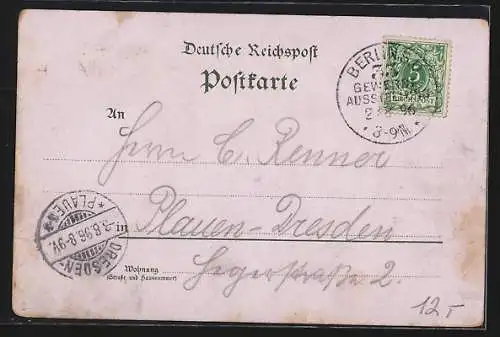 Deutsche Reichspost
Postkarte
BERLIN
GEWERBE
AUSST
2 8 96
8-9N.
5
An
Herrn C. Renner
in Plauen-Dresden
Wohnung
(Straße und Hausnummer)
straße 2.
DRESDEN-
3.8.96.8-9V.
*PLAUEN*
12,-